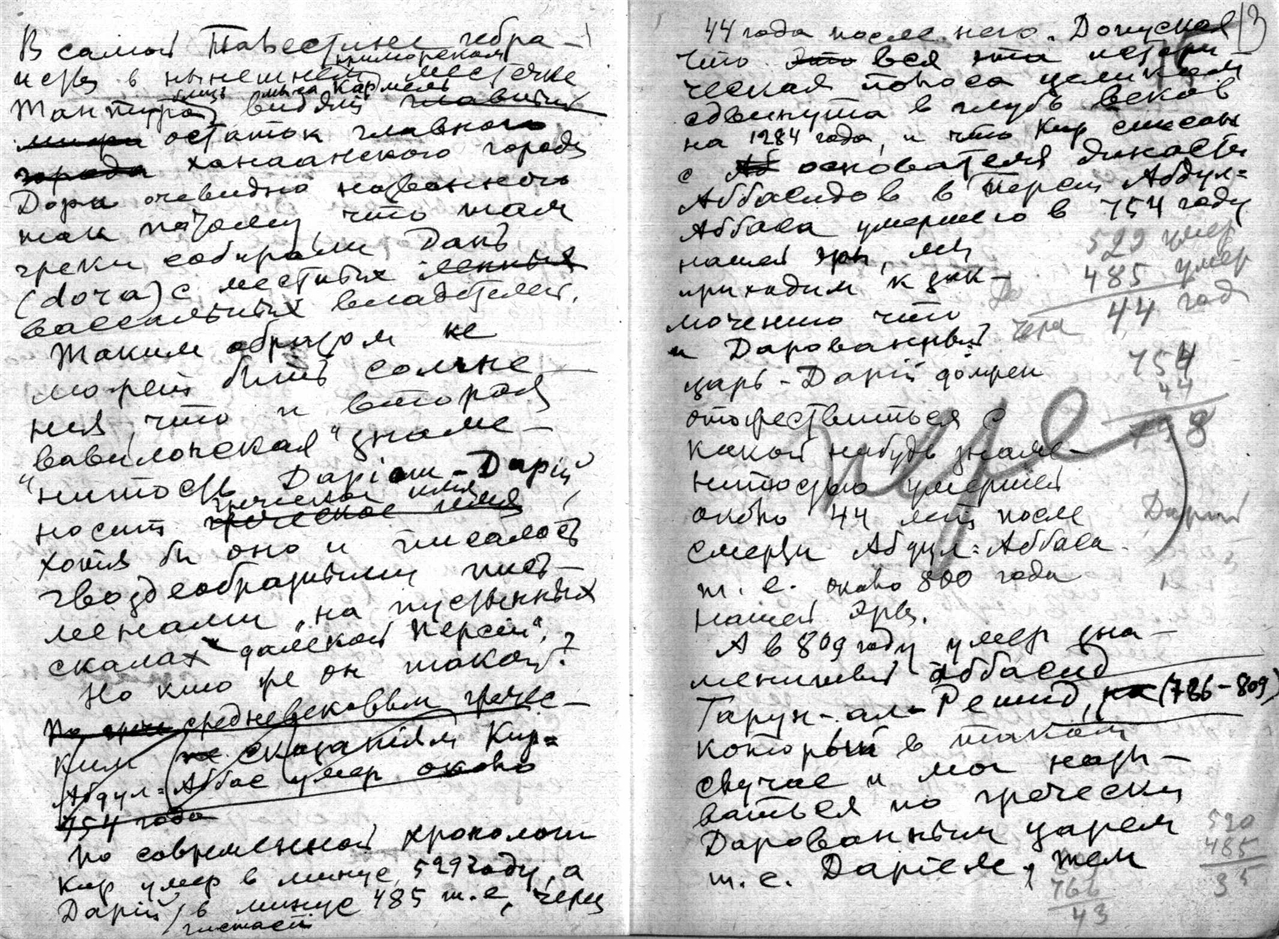 В самой Палестине гебра-
исты в нынешнем приморском местечке
Тантура близ мыса Кармель видят главный
остаток главного
города ханаанского города
Доры очевидно названного
так потому что там
греки собирали дань
(dora) с местных ленных
вассальных владетелей.
Таким образом не
может быть сомне-
ния, что и вторая
вавилонская "знаме-
"нитость Даріош-Дарій"
носит греческое имя греческое имя
хотя бы оно и писалось
гвоздеобразными пись-
менами "на пустынных
скалах далекой Персии".
Но кто же он такой?
По средневековым гречес-
ким сказаниям Кир=
Абдул=Аббас умер около
754 года
По современной хронологии
Кир умер в минус 529 году, а
Дарій Гистасп в минус 485 т.е, через
13
44 года после него. Допуская
что это вся эта истори-
ческая полоса целиком
сдвинута в глубь веков
на 1284 года, и что Кир списан
с Аб основателя династии
Аббасидов в Персии Абдул=
Аббаса умершего в 754 году
нашей эры, мы
приходим к зак-
лючению что
и Дарованный
царь-Дарій должен
отожествиться с
какой нибудь знаме-
нитостью умершей
около 44 лет после
смерти Абдул=Аббаса
т. е. около 800 года
нашей эры.
А в 809 году умер зна-
менитый Аббасид
Гарун-ал-Решид, (786-809)
который в таком
случае и мог назы-
ваться по гречески
Дарованным царем
т. е. Даріем, тем
529 умер
485 умер
чера 44 год
754
44
798
Дарий
520
485
35
766
43